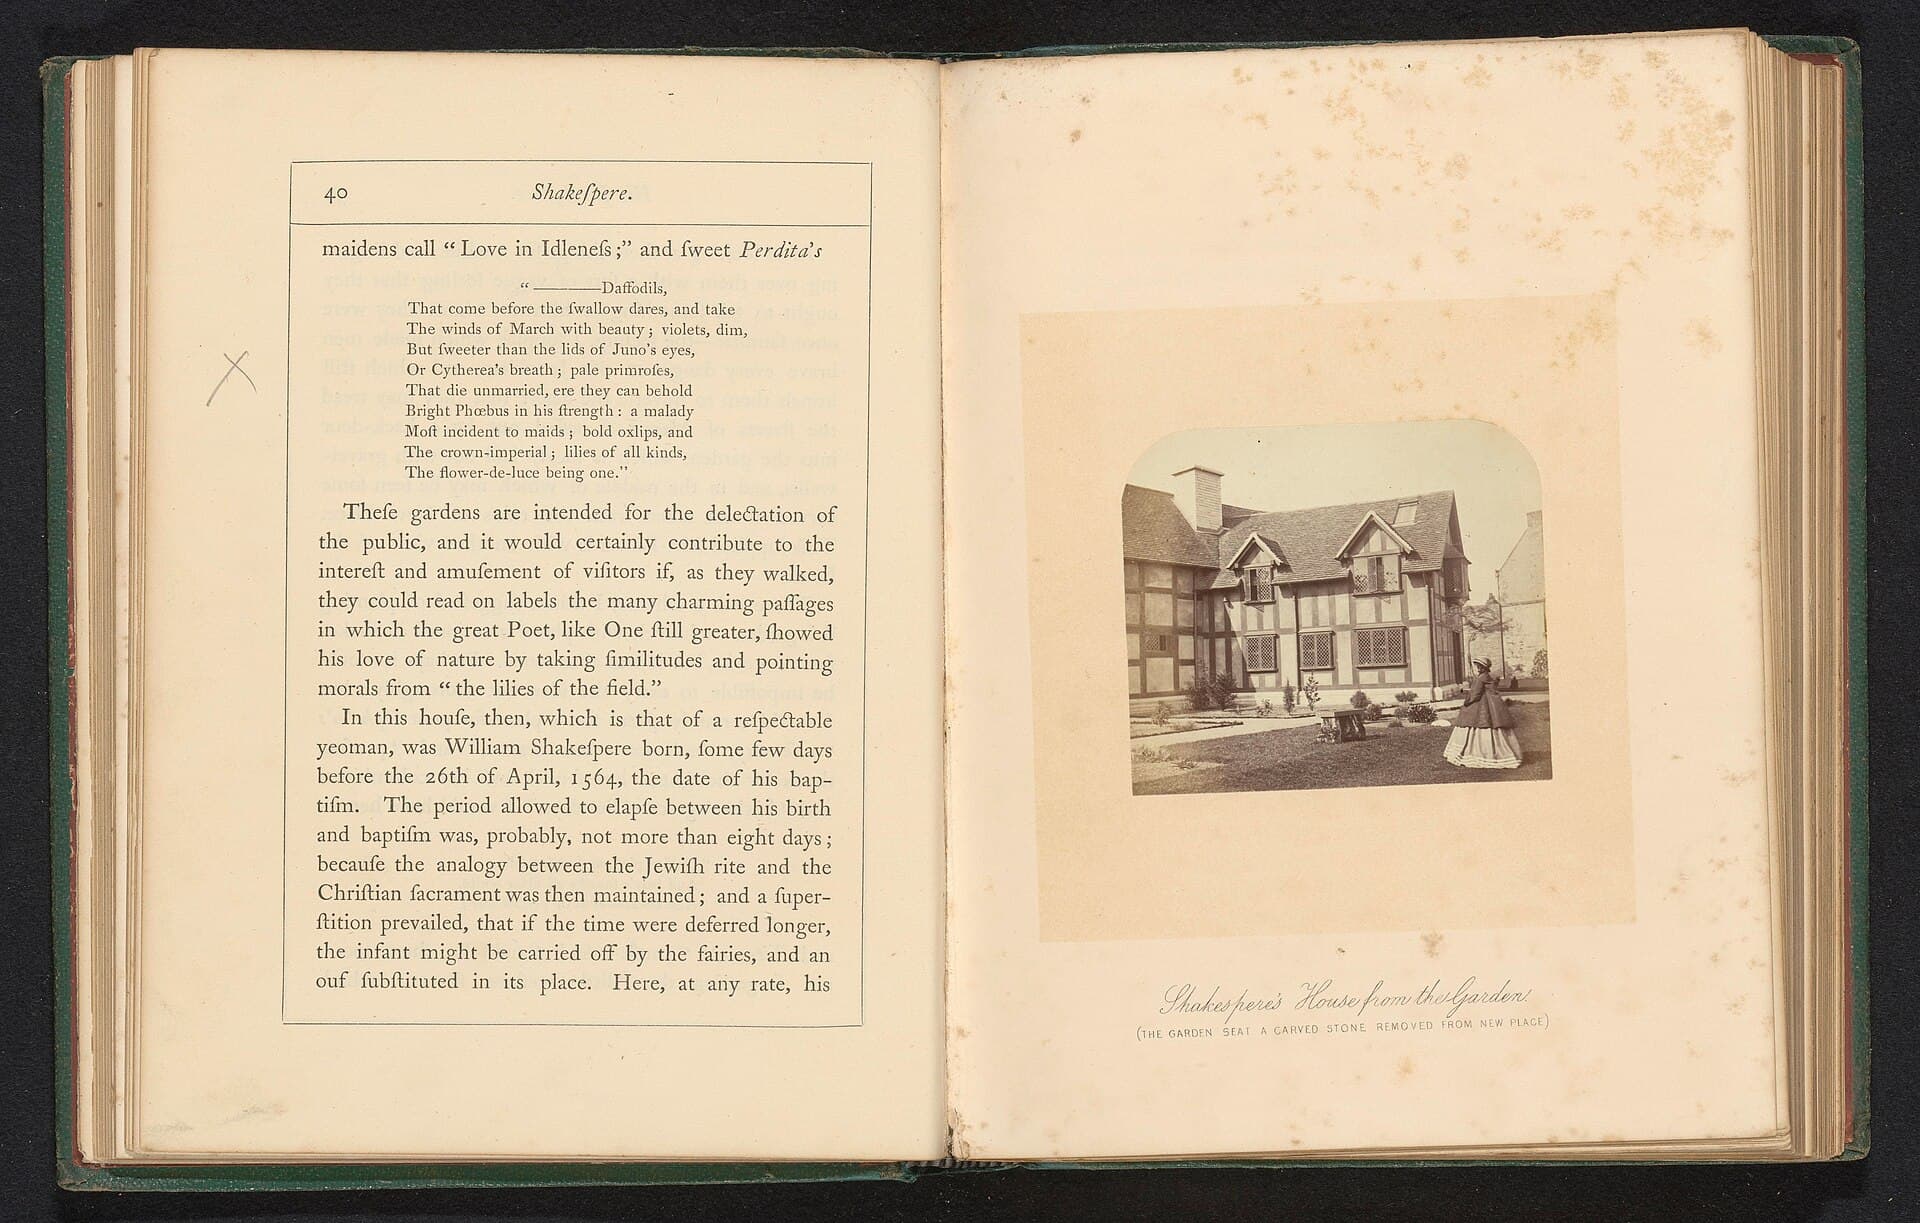 40
Shakeſpere.
maidens call “ Love in Idleneſs ;” and ſweet Perdita's
“ ————Daffodils,
That come before the ſwallow dares, and take
The winds of March with beauty ; violets, dim,
But ſweeter than the lids of Juno's eyes,
Or Cytherea's breath ; pale primroſes,
That die unmarried, ere they can behold
Bright Phœbus in his ſtrength : a malady
Moſt incident to maids ; bold oxlips, and
The crown-imperial ; lilies of all kinds,
The flower-de-luce being one.”
Theſe gardens are intended for the delectation of
the public, and it would certainly contribute to the
intereſt and amuſement of viſitors if, as they walked,
they could read on labels the many charming paſſages
in which the great Poet, like One ſtill greater, ſhowed
his love of nature by taking ſimilitudes and pointing
morals from “ the lilies of the field.”
In this houſe, then, which is that of a reſpectable
yeoman, was William Shakeſpere born, ſome few days
before the 26th of April, 1564, the date of his bap-
tiſm. The period allowed to elapſe between his birth
and baptiſm was, probably, not more than eight days ;
becauſe the analogy between the Jewiſh rite and the
Chriſtian ſacrament was then maintained ; and a ſuper-
ſtition prevailed, that if the time were deferred longer,
the infant might be carried off by the fairies, and an
ouf ſubſtituted in its place. Here, at any rate, his
Shakespere's House from the Garden.
(THE GARDEN SEAT A CARVED STONE REMOVED FROM NEW PLACE)